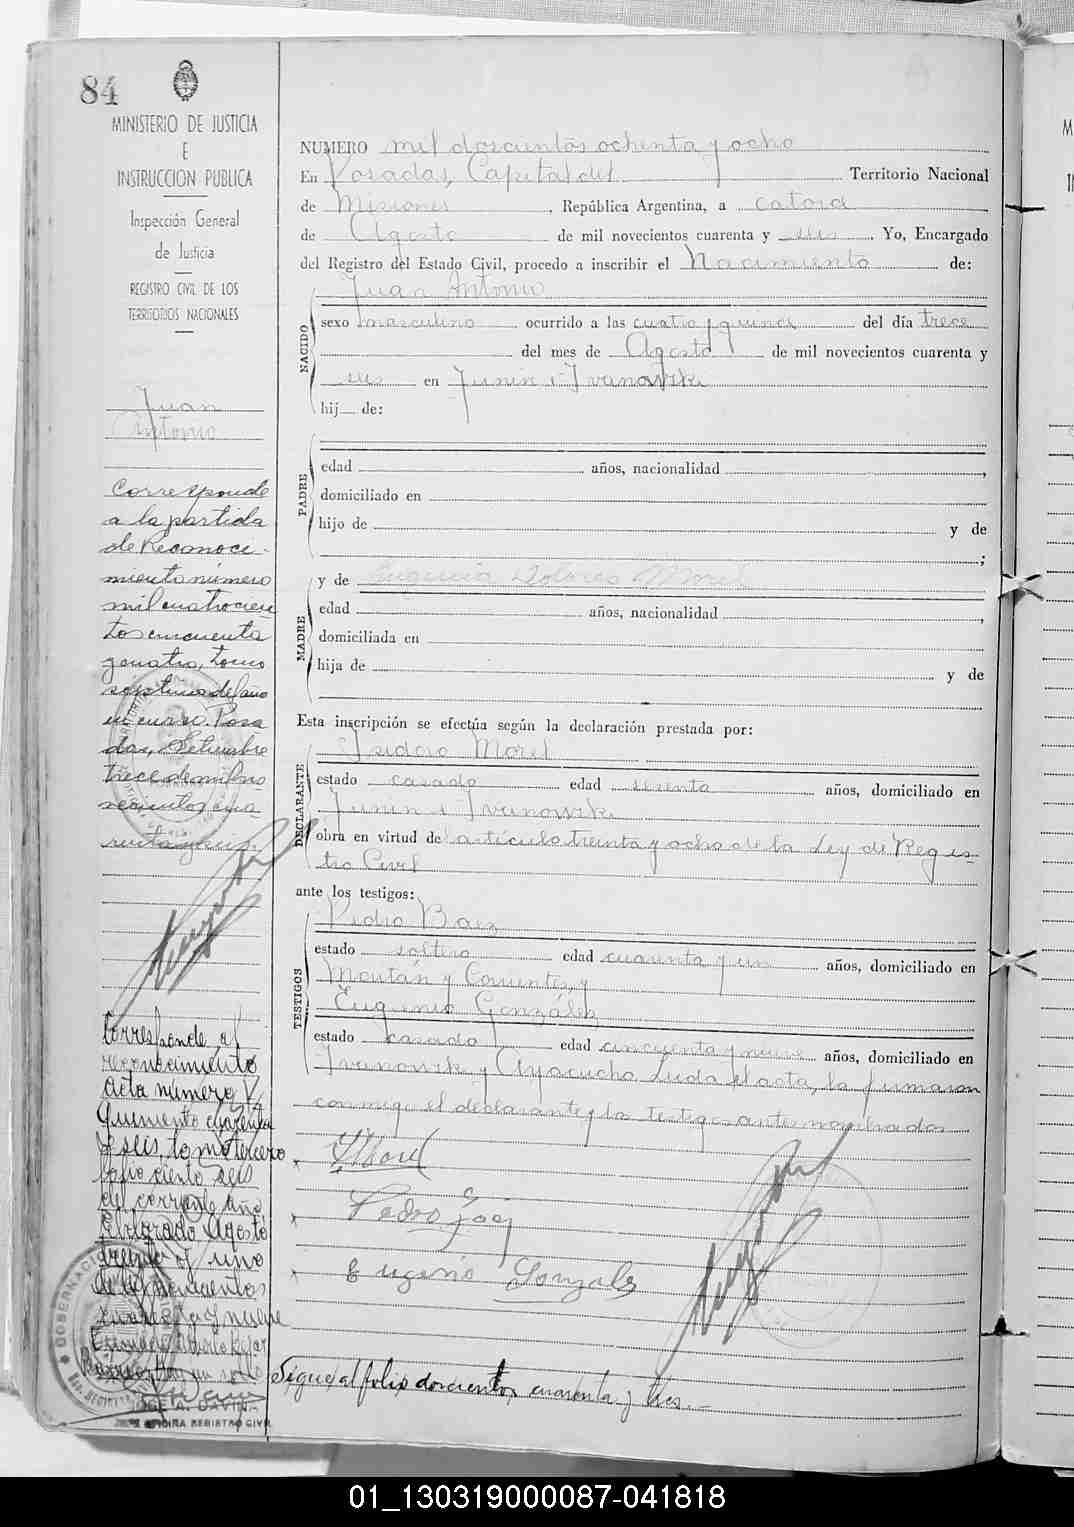 84
MINISTERIO DE JUSTICIA
E
INSTRUCCION PUBLICA
Inspección General
de Justicia
REGISTRO CIVIL DE LOS
TERRITORIOS NACIONALES
Juan
Antonio
Corresponde
a la partida
de Reconoci-
miento número
mil cuatrocien
tos cincuenta
y cuatro, tomo
septimo del año
en curso. Posa
das, Setiembre
trece de mil no
vecientos cua
renta y seis.
Corresponde al
reconocimiento
acta número
quinientos cuarenta
y seis, tomo tercero
folio ciento seis
del corriente año
Agosto
treinta y uno
de mil novecientos
JOSE A. GAVIÑA
JEFE OFICINA REGISTRO CIVIL
NUMERO mil doscientos ochenta y ocho
En Posadas, Capital del Territorio Nacional
de Misiones, República Argentina, a catorce
de Agosto de mil novecientos cuarenta y seis. Yo, Encargado
del Registro del Estado Civil, procedo a inscribir el Nacimiento de:
NACIDO
Juan Antonio
sexo masculino ocurrido a las cuatro y quince del día trece
del mes de Agosto de mil novecientos cuarenta y
seis en Junin e Ivanowski
hij de:
PADRE
edad años, nacionalidad ,
domiciliado en
hijo de y de
;
MADRE
y de Eugenia Dolores Morel
edad años, nacionalidad ,
domiciliada en
hija de y de
Esta inscripción se efectúa según la declaración prestada por:
DECLARANTE
Isidoro Morel
estado casado edad sesenta años, domiciliado en
Junin e Ivanowski
obra en virtud del artículo treinta y ocho de la Ley de Regis-
tro Civil
ante los testigos:
TESTIGOS
Pedro Baez
estado soltero edad cuarenta y un años, domiciliado en
y Corrientes, y
Eugenio González
estado casado edad cincuenta y nueve años, domiciliado en
Ivanowski y Ayacucho. Leida el acta, la firmaron
conmigo el declarante y los testigos antes nombrados
I Morel
Pedro
Eugenio Gonzales
Sigue al folio doscientos cuarenta y tres.-
01_130319000087-041818